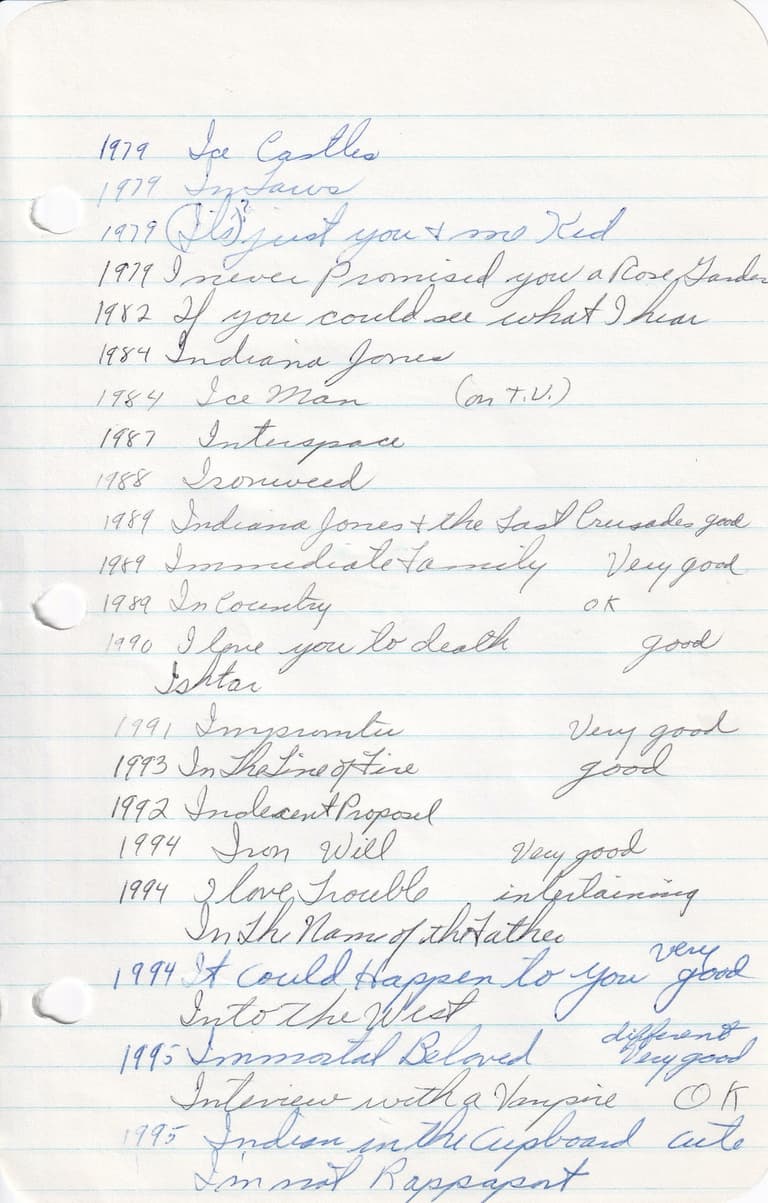 1979 Ice Castles
1979 In Laws
1979 (It's)? just you + me Kid
1979 I never Promised you a Rose Garden
1982 If you could see what I hear
1984 Indiana Jones
1984 Ice Man (on T.V.)
1987 Interspace
1988 Ironweed
1989 Indiana Jones + the Last Crusades good
1989 Immediate Family Very good
1989 In Country OK
1990 I love you to death good
Ishtar
1991 Impromtu Very good
1993 In The Line of Fire good
1992 Indecent Proposel
1994 Iron Will Very good
1994 I love Trouble intertaining
In The Name of the Father
1994 It Could Happen to you very good
Into the West
1995 Immortal Beloved different Very good
Interview with a Vampire OK
1995 Indian in the Cupboard cute
I'm not Rappaport